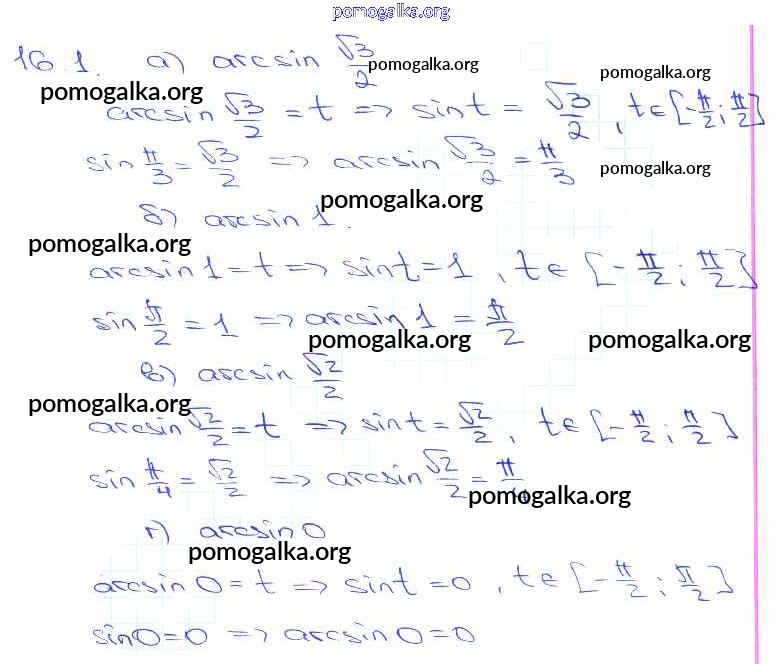 pomogalka.org
16.1. а) arcsin √3/2
pomogalka.org
pomogalka.org
pomogalka.org
arcsin √3/2 = t => sin t = √3/2, t ∈ [-π/2; π/2]
sin π/3 = √3/2 => arcsin √3/2 = π/3
pomogalka.org
pomogalka.org
б) arcsin 1.
pomogalka.org
arcsin 1 = t => sin t = 1, t ∈ [-π/2; π/2]
sin π/2 = 1 => arcsin 1 = π/2
pomogalka.org
pomogalka.org
в) arcsin √2/2
pomogalka.org
arcsin √2/2 = t => sin t = √2/2, t ∈ [-π/2; π/2]
sin π/4 = √2/2 => arcsin √2/2 = π/4
pomogalka.org
г) arcsin 0
pomogalka.org
arcsin 0 = t => sin t = 0, t ∈ [-π/2; π/2]
sin 0 = 0 => arcsin 0 = 0